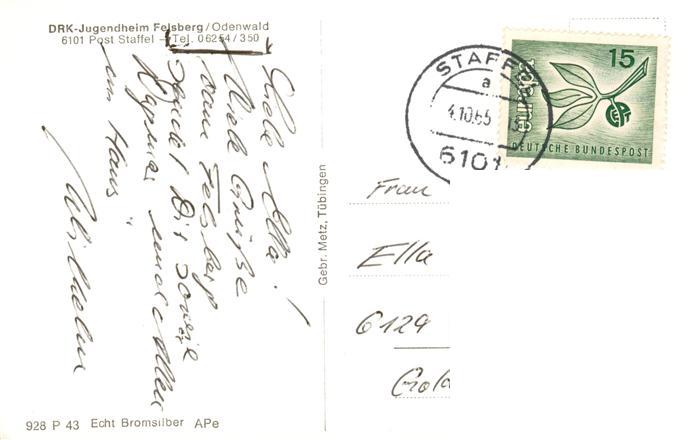 DRK-Jugendheim Felsberg/Odenwald
6101 Post Staffel – Tel. 06254/350
Liebe Ella!
Viele Grüße
vom Felsberg
sendet Dir sowie
und allen
im Haus
Wilhelm
928 P 43 Echt Bromsilber APe
Gebr. Metz, Tübingen
STAFFEL
a
4.10.65
6101
15
DEUTSCHE BUNDESPOST
Frau
Ella
6129